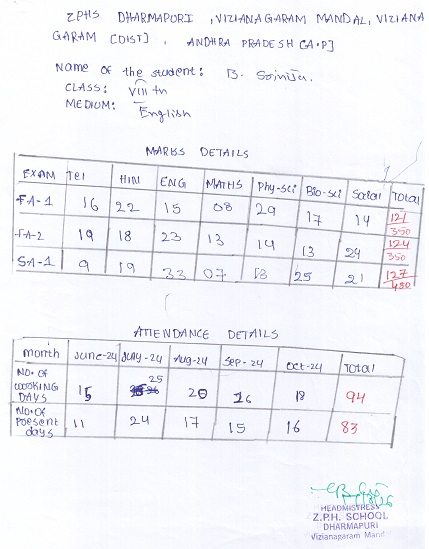 ZPHS DHARMAPURI , VIZIANAGARAM MANDAL, VIZIANA
GARAM [DIST] , ANDHRA PRADESH [A.P]
Name of the student: B.
CLASS: VIII th
MEDIUM: English
MARKS DETAILS
EXAM Tel HIN ENG MATHS Phy-sci Bio-sci Social Total
FA-1 16 22 15 08 29 17 14 121/350
FA-2 19 18 23 13 14 13 24 124/350
SA-1 9 19 33 07 13 25 21 127/480
ATTENDANCE DETAILS
month June-24 July-24 Aug-24 Sep-24 Oct-24 Total
NO.OF WORKING DAYS 15 25 20 16 18 94
NO.OF present days 11 24 17 15 16 83
HEADMISTRESS
Z.P.H. SCHOOL
DHARMAPURI
Vizianagaram Mand